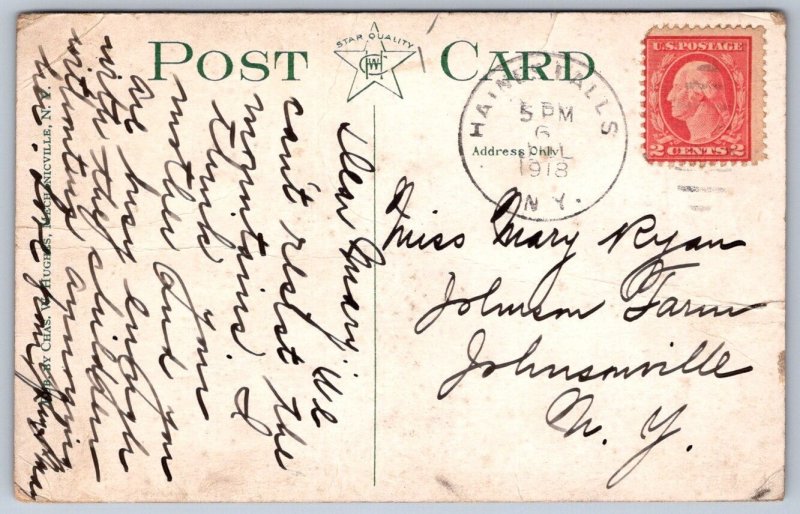 POST CARD
STAR QUALITY
CWH
HAINES FALLS
5 PM
6
JUL
1918
N.Y.
U.S. POSTAGE
2 CENTS 2
Address Only.
Miss Mary Ryan
Johnson Farm
Johnsonville
N. Y.
Dear Mary: We
can't resist the
mountains. I
think your
mother and you
are busy enough
with they children
without annoying
her. Love
PUB. BY CHAS. W. HUGHES, MECHANICVILLE, N. Y.